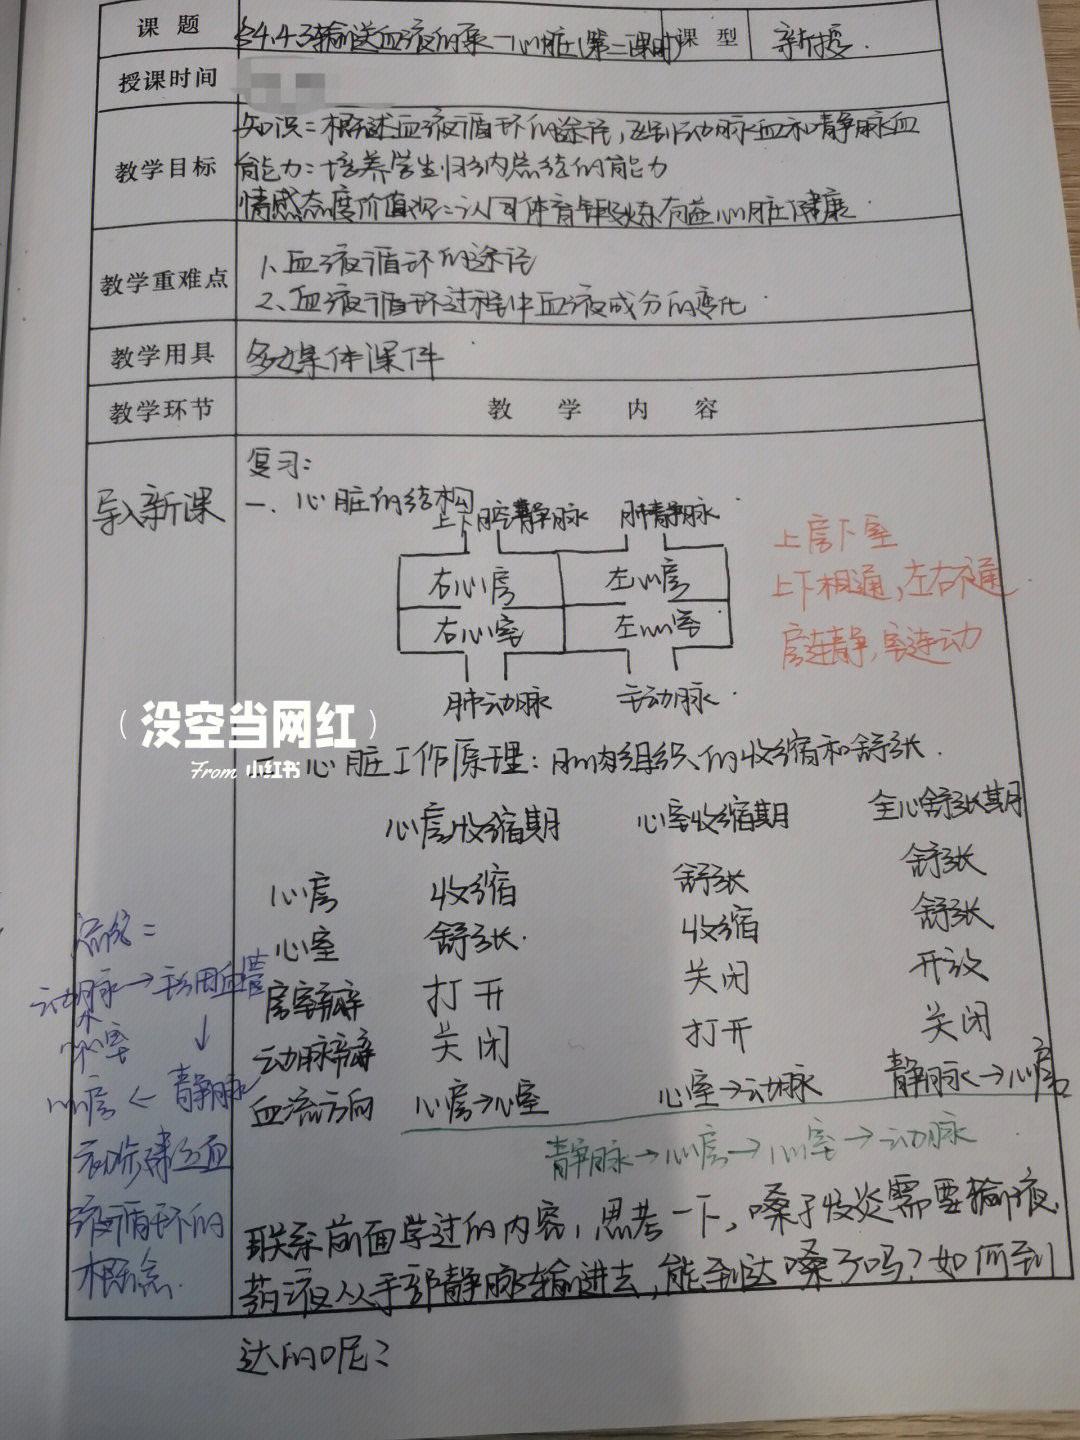 课题 §4.4.3输送血液的泵—心脏(第二课时) 课型 新授.
授课时间
教学目标 知识:概述血液循环的途径,区别动脉血和静脉血
能力:培养学生归纳总结的能力
情感态度价值观:认同体育锻炼有益心脏健康.
教学重难点 1、血液循环的途径
2、血液循环过程中血液成分的变化.
教学用具 多媒体课件
教学环节 教学内容
导入新课 复习:
一、心脏的结构
上下腔静脉 肺静脉
右心房 左心房
右心室 左心室
肺动脉 主动脉.
上房下室
上下相通,左右不通
房连静,室连动
(没空当网红)
From 小红书
二、心脏工作原理:肌肉组织的收缩和舒张.
心房收缩期 心室收缩期 全心舒张期
心房 收缩 舒张 舒张
心室 舒张. 收缩 舒张
房室瓣 打开 关闭 开放
动脉瓣 关闭 打开 关闭
血流方向 心房→心室 心室→动脉 静脉→心房
静脉→心房→心室→动脉
总结:
动脉→毛细血管
↑ ↓
心室
心房←静脉
初步建立血
液循环的
概念.
联系前面学过的内容,思考一下,嗓子发炎需要输液.
药液从手部静脉输进去,能到达嗓子吗?如何到
达的呢?